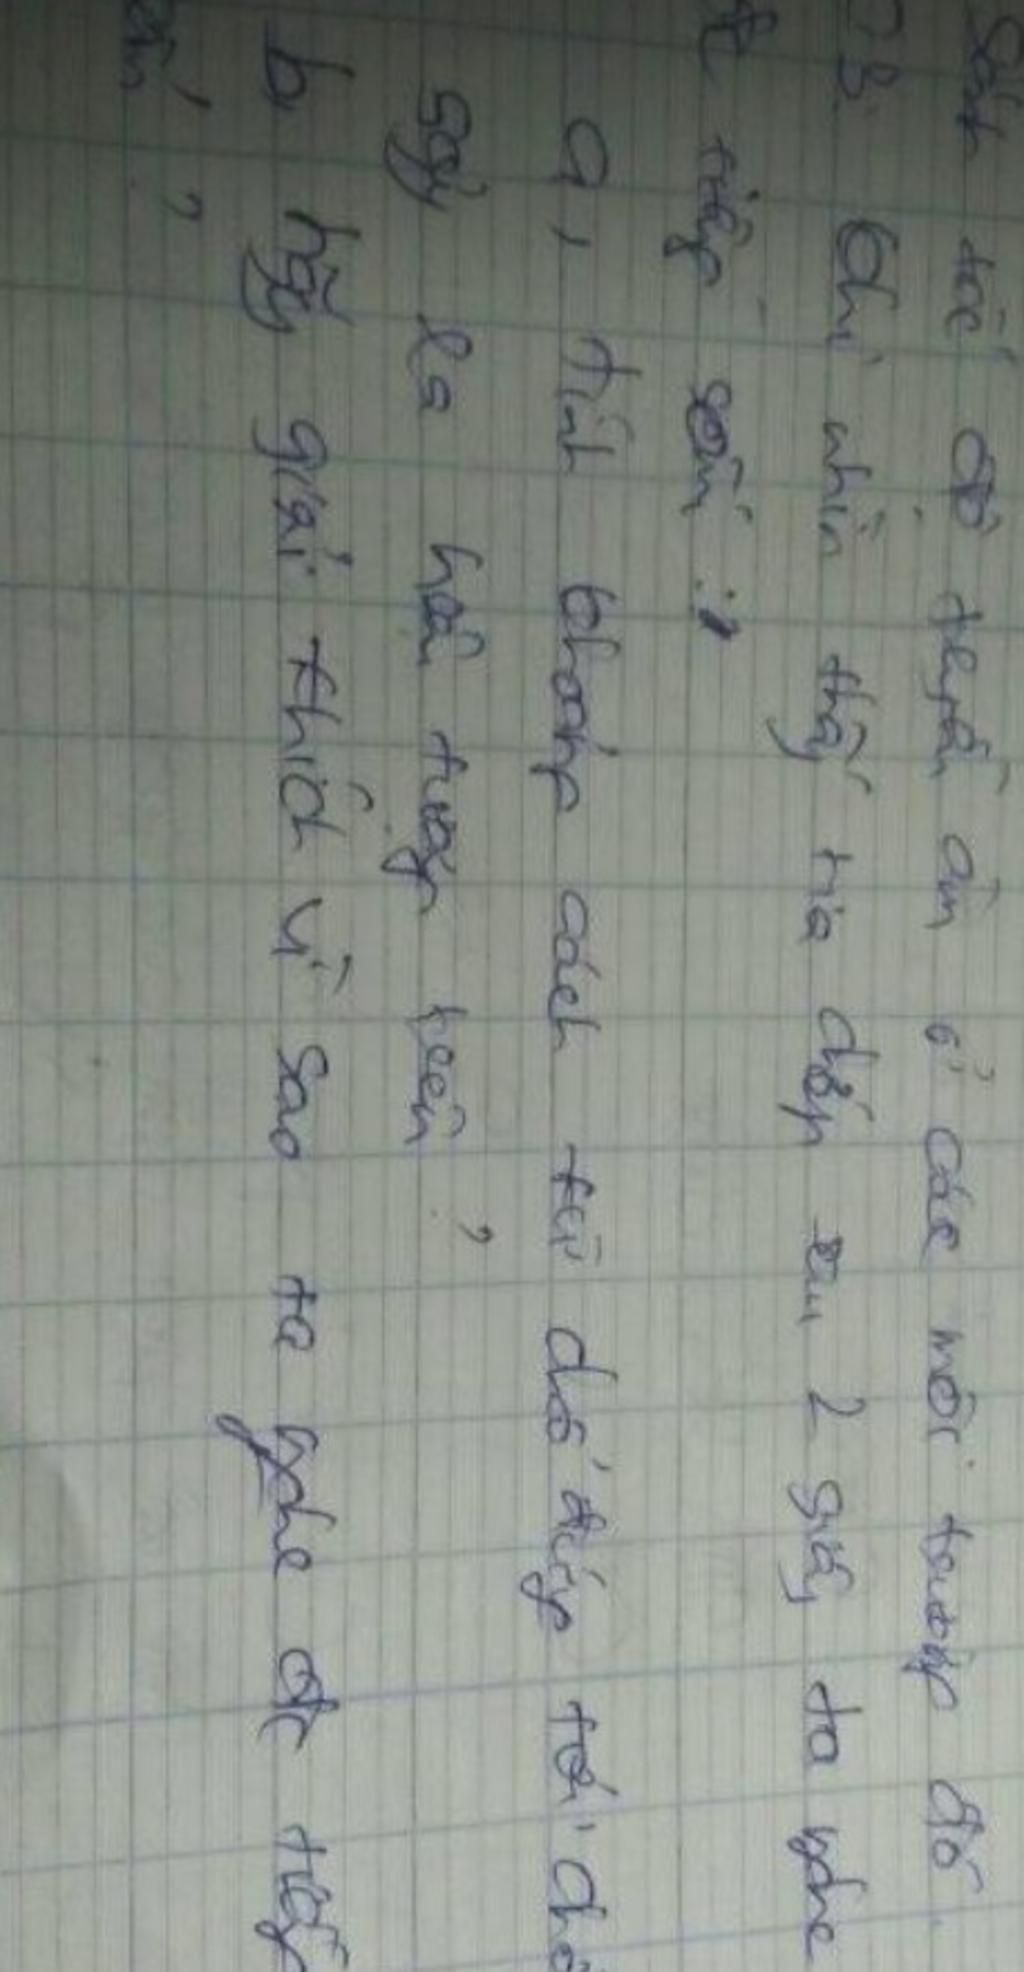 Sánh tốc độ truyền âm ở các môi trường đó.
3. Khi nhìn thấy tia chớp sau 2 giây ta nghe
đc tiếng sấm.
a, tính khoảng cách từ chỗ đứng tới chỗ
sảy la hiện tượng trên?
b, hãy giải thích vì sao ta nghe đc tiếng
sấm?